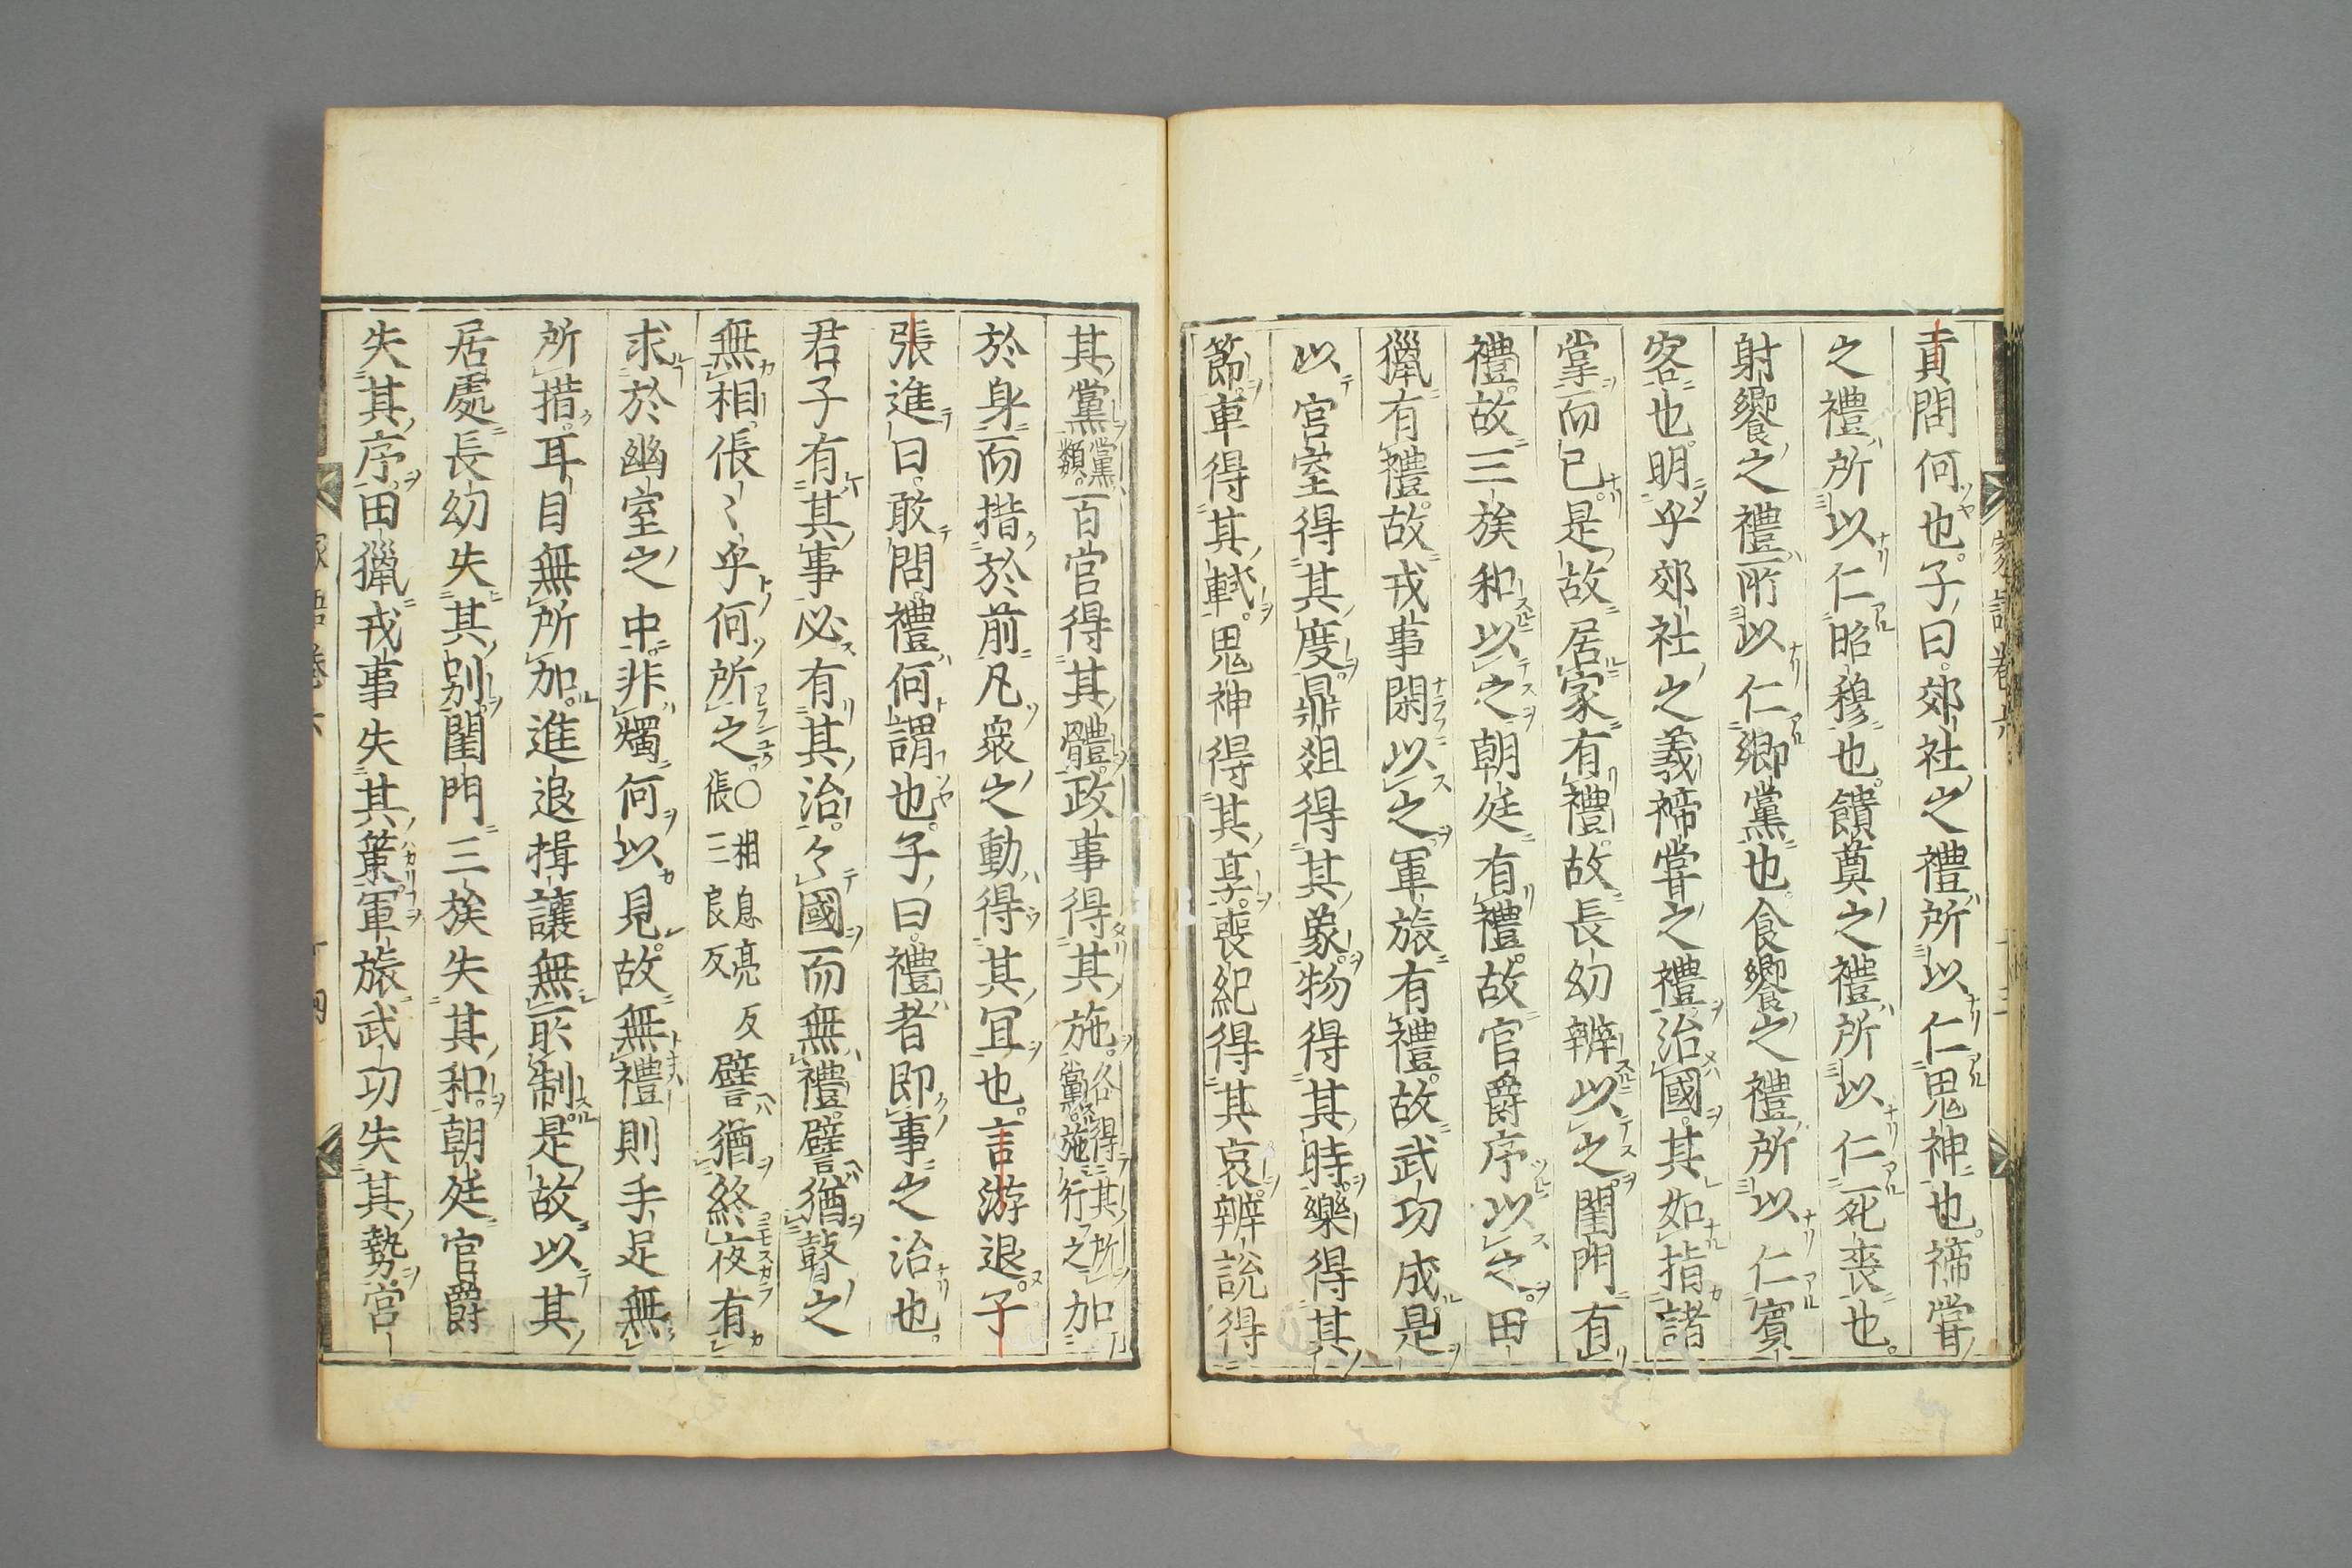 貢問何也。子曰。郊社之禮所以仁鬼神也。禘甞
之禮所以仁昭穆也。饋奠之禮所以仁死喪也。
射饗之禮所以仁鄉黨也。食饗之禮所以仁賓
客也。明乎郊社之義禘甞之禮。治國其如指諸
掌而已。是故居家有禮。故長幼辨以之閨門有
禮。故三族和以之朝廷有禮。故官爵序以之。田
獵有禮。故戎事閑以之軍旅有禮。故武功成是
以宮室得其度。鼎俎得其象。物得其時。樂得其
節。車得其軾。鬼神得其享。喪紀得其哀。辨說得
其黨黨類。百官得其體。政事得其施。各得其所加黨施行之加
於身而措於前凡衆之動得其冝也。言游退。子
張進曰。敢問禮何謂也。子曰。禮者即事之治也。
君子有其事必有其治。〻國而無禮。譬猶瞽之
無相。倀〻乎何所之〇相息亮反倀二良反譬猶終夜有
求於幽室之中。非燭何以見。故無禮則手足無
所措。耳目無所加。進退揖讓無所制。是故以其
居處長幼失其別。閨門三族失其和。朝廷官爵
失其序。田獵戎事失其策。軍旅武功失其勢。宮
家語卷六